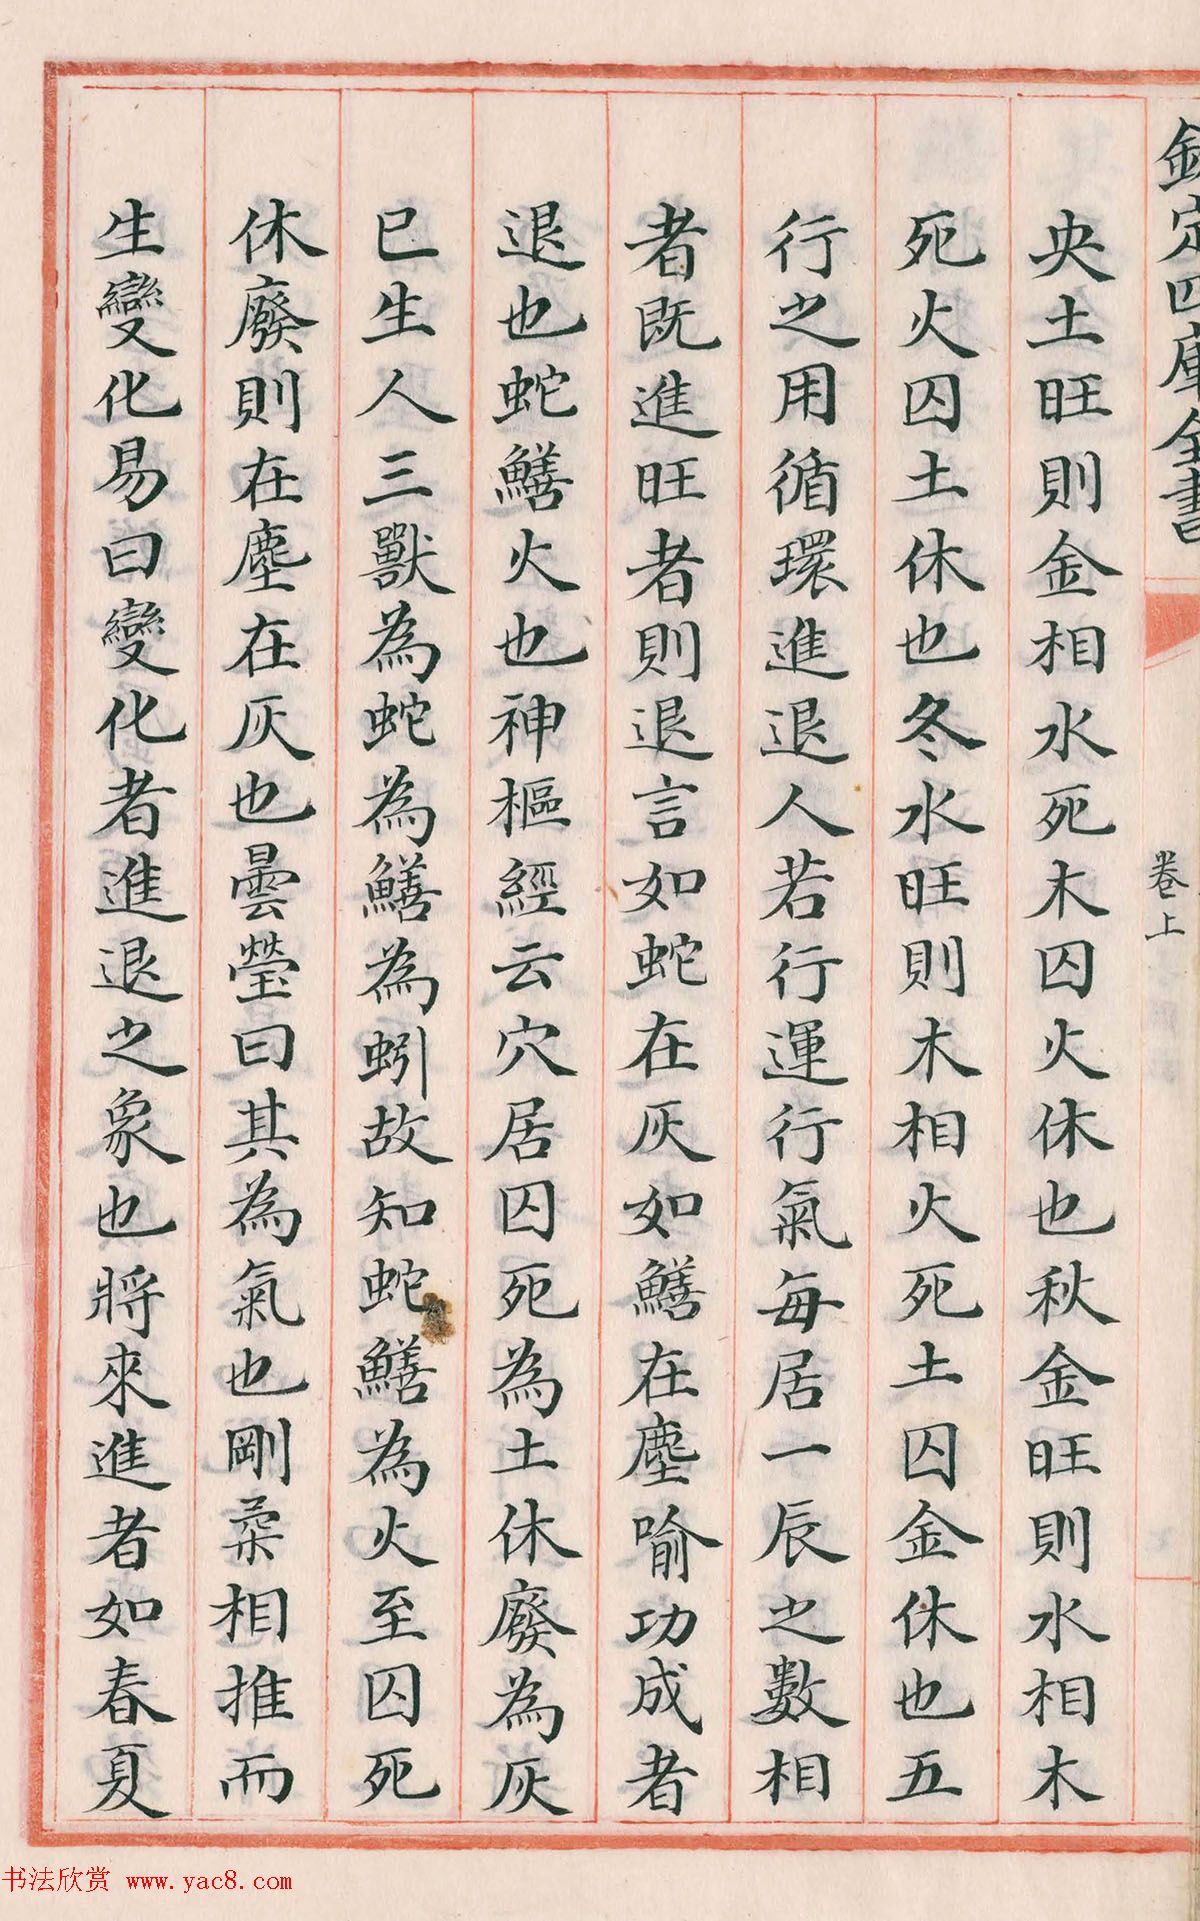 欽定四庫全書
卷上
央土旺則金相水死木囚火休也秋金旺則水相木
死火囚土休也冬水旺則木相火死土囚金休也五
行之用循環進退人若行運行氣每居一辰之數相
者既進旺者則退言如蛇在灰如鱔在塵喻功成者
退也蛇鱔火也神樞經云穴居囚死為土休廢為灰
巳生人三獸為蛇為鱔為蚓故知蛇鱔為火至囚死
休廢則在塵在灰也曇瑩曰其為氣也剛柔相推而
生變化易曰變化者進退之象也將來進者如春夏
书法欣赏 www.yac8.com